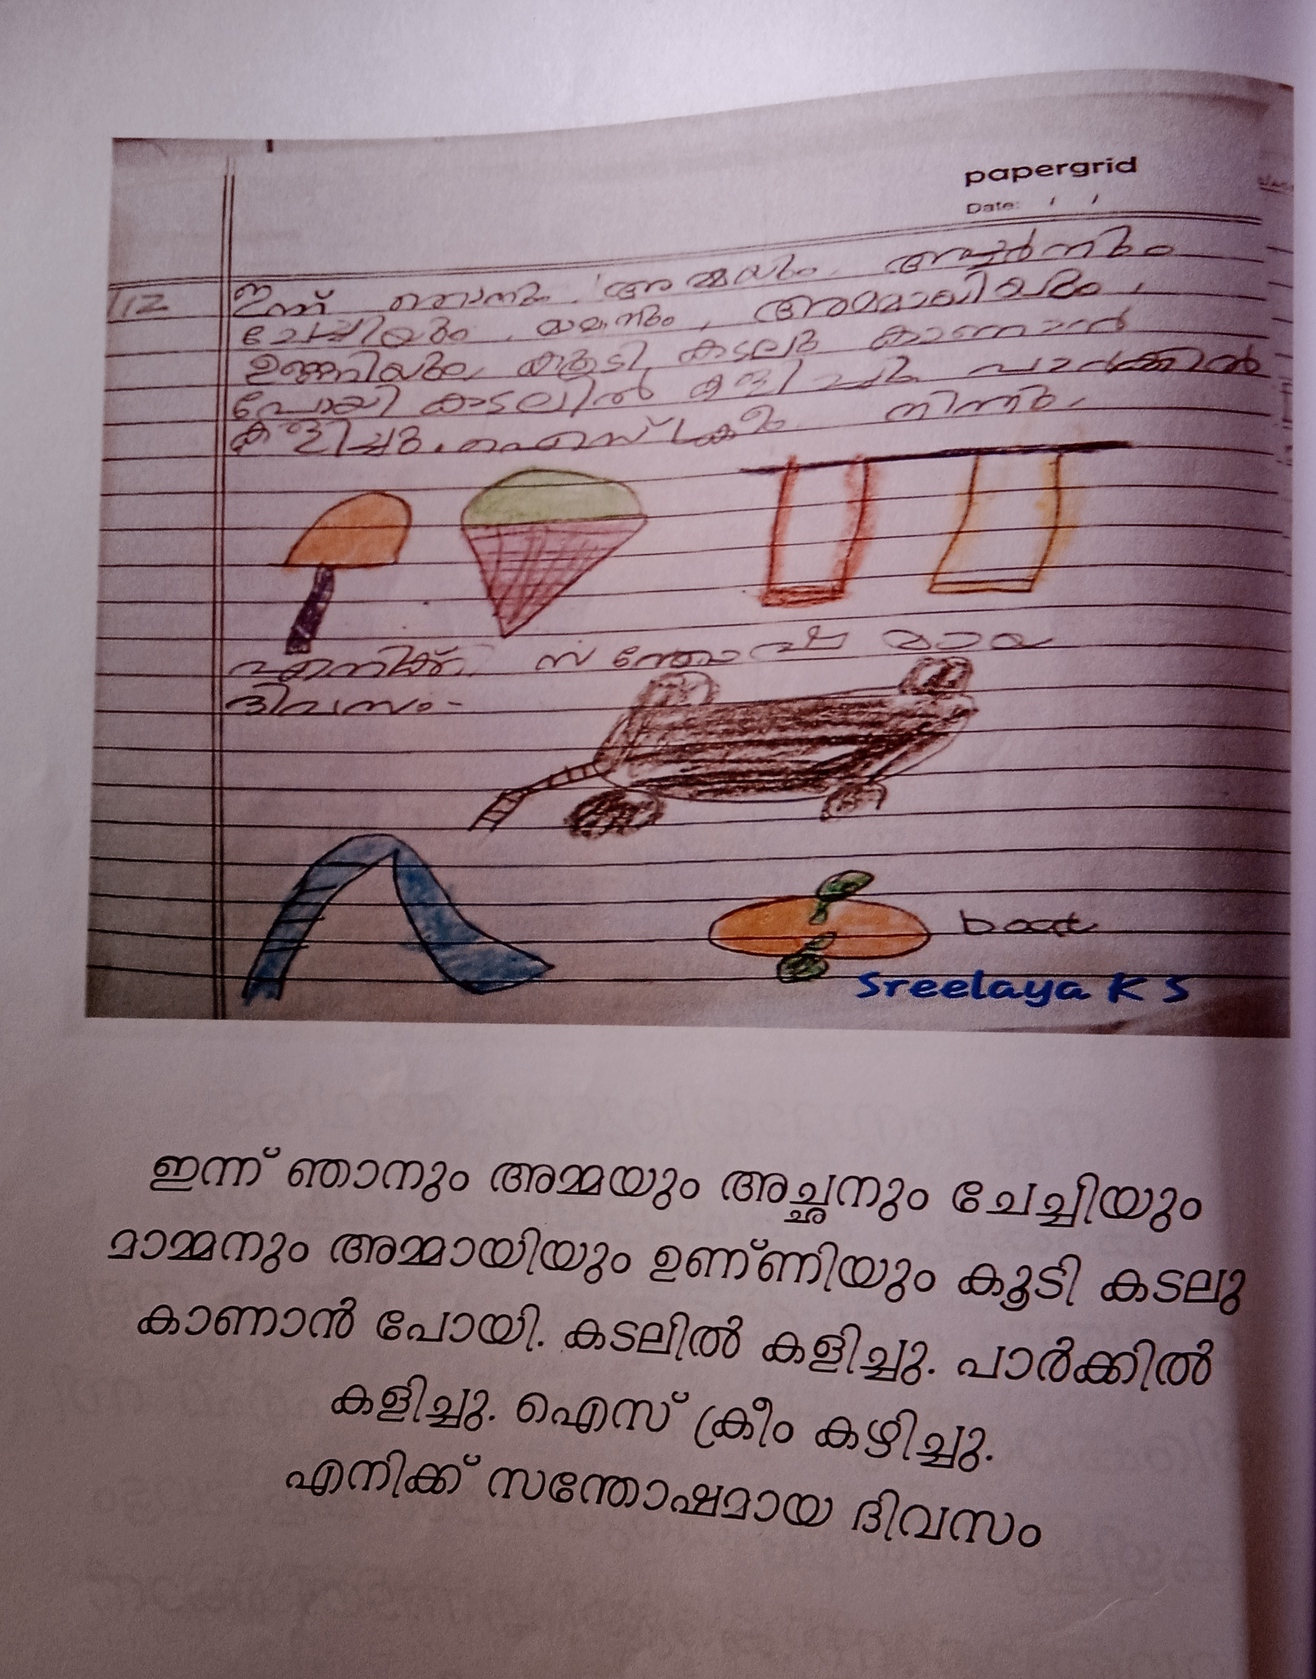 papergrid
Date: / /
/12 ഇന്ന് ഞാനും അമ്മയും അച്ഛനും
ചേച്ചിയും
ഉണ്ണിയും കൂടി കടലു കാണാൻ
പോയി കടലിൽ കളിച്ചു പാർക്കിൽ
കളിച്ചു. ഐസ് ക്രീം തിന്നു.
എനിക്ക് സന്തോഷ മായ
ദിവസം-
boat
Sreelaya K S
ഇന്ന് ഞാനും അമ്മയും അച്ഛനും ചേച്ചിയും
മാമ്മനും അമ്മായിയും ഉണ്ണിയും കൂടി കടലു
കാണാൻ പോയി. കടലിൽ കളിച്ചു. പാർക്കിൽ
കളിച്ചു. ഐസ് ക്രീം കഴിച്ചു.
എനിക്ക് സന്തോഷമായ ദിവസം